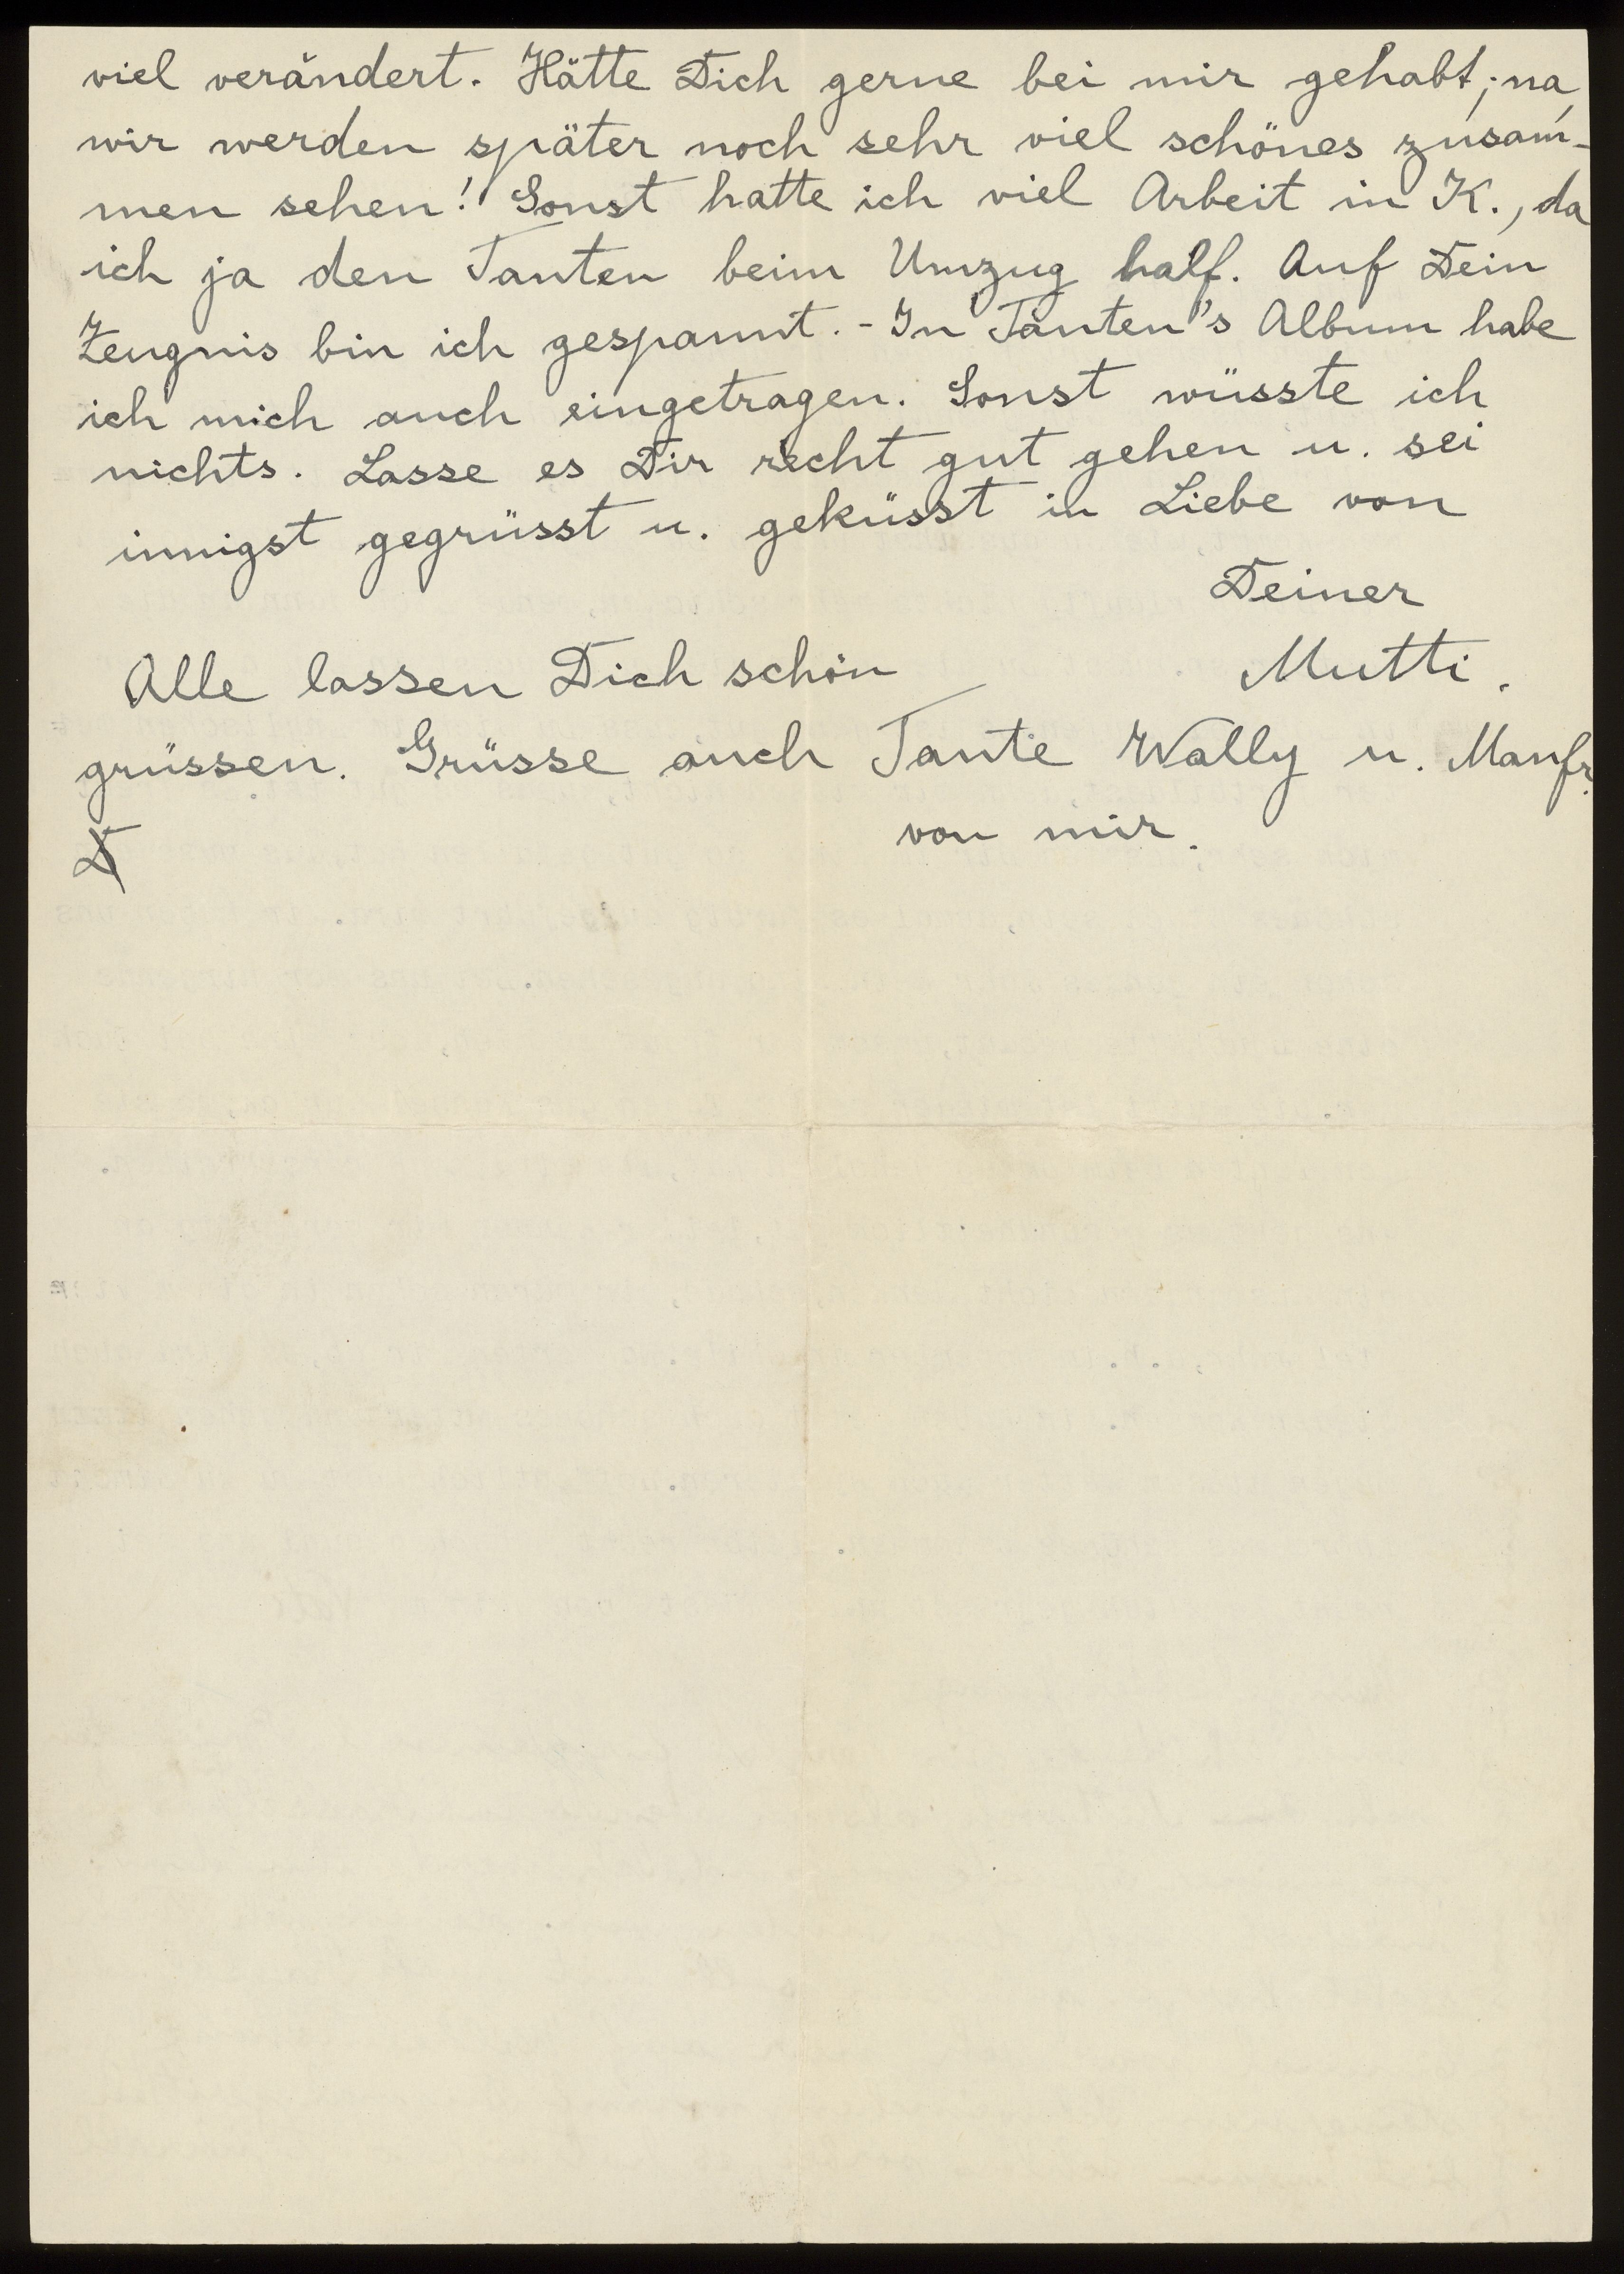 viel verändert. Hätte Dich gerne bei mir gehabt; na,
wir werden später noch sehr viel schönes zusam-
men sehen! Sonst hatte ich viel Arbeit in K., da
ich ja den Tanten beim Umzug half. Auf Dein
Zeugnis bin ich gespannt. - In Tanten's Album habe
ich mich auch eingetragen. Sonst wüsste ich
nichts. Lasse es Dir recht gut gehen u. sei
innigst gegrüsst u. geküsst in Liebe von
Deiner
Mutti.
Alle lassen Dich schön
grüssen. Grüsse auch Tante Wally u. Manfr.
von mir.